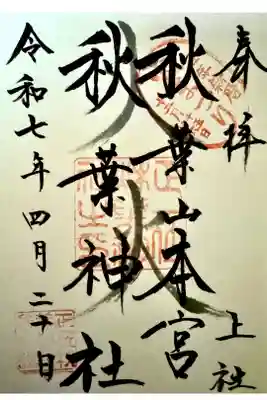 奉拝 上社
秋葉山本宮
秋葉神社
令和七年四月二十日